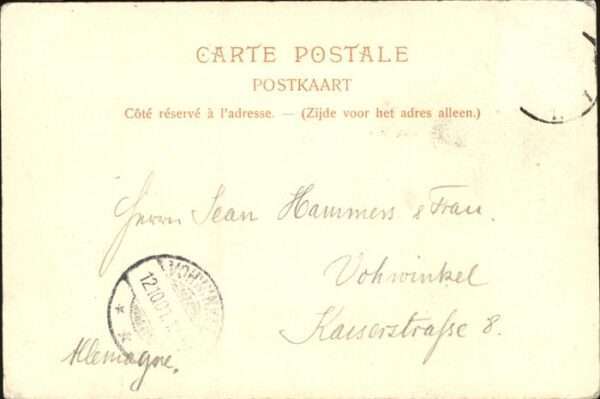 CARTE POSTALE
POSTKAART
Côté réservé à l'adresse. — (Zijde voor het adres alleen.)
Herrn Jean Hammers & Frau.
Vohwinkel
Kaiserstraße 8.
Allemagne.
VOHWINKEL
12.10.01